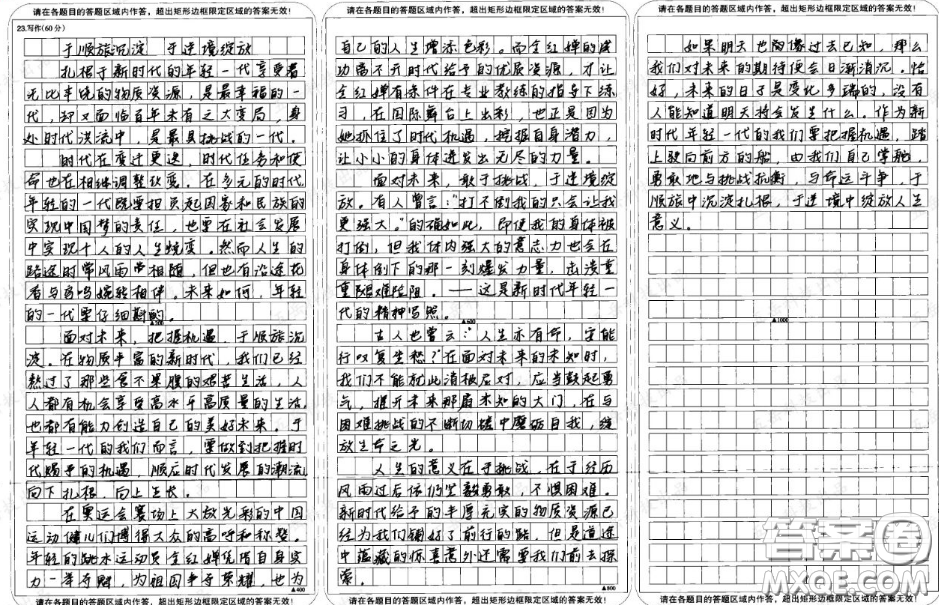 请在各题目的答题区域内作答，超出矩形边框限定区域的答案无效！
23.写作(60分)
于顺旅沉淀 于逆境绽放
扎根于新时代的年轻一代享受着
无比丰饶的物质资源，是最幸福的一
代，却又面临百年未有之大变局，身
处时代洪流中，是最具挑战的一代。
时代在变迁更迭，时代任务和使
命也在相继调整改变。在多元的时代，
年轻的一代既要担负起国家和民族的
实现中国梦的责任，也要在社会发展
中实现个人的人生蜕变。然而人生的
路途时常风雨常相随，但也有沿途花
香与鸟鸣婉转相伴。未来如何，年轻
的一代要仔细斟酌。
面对未来，把握机遇，于顺旅沉
淀。在物质丰富的新时代，我们已经
熬过了那些食不果腹的艰苦生活，人
人都有机会享受高水平高质量的生活，
也都有能力创造自己的美好未来。于
年轻一代的我们而言，要做到把握时
代赐予的机遇，顺应时代发展的潮流，
向下扎根，向上生长。
在奥运会赛场上大放光彩的中国
运动健儿们博得大众的高呼和称赞。
年轻的跳水运动员全红婵凭借自身实
力一举夺魁，为祖国争予荣耀，也为
▲400
请在各题目的答题区域内作答，超出矩形边框限定区域的答案无效！
请在各题目的答题区域内作答，超出矩形边框限定区域的答案无效！
自己的人生增添色彩。而全红婵的成
功离不开时代给予的优质资源，才让
全红婵有条件在专业教练的指导下练
习，在国际舞台上出彩，也正是因为
她抓住了时代机遇，挖掘自身潜力，
让小小的身体迸发出无尽的力量。
面对未来，敢于挑战，于逆境绽
放。有人曾言：“打不倒我的只会让我
更强大。”的确如此，即使我的身体被
打倒，但我体内强大的意志力也会在
身体倒下的那一刻爆发力量，击溃重
重艰难险阻。——这是新时代年轻一
代的精神写照。
▲600
古人也曾云：“人生亦有命，安能
行叹复坐愁？”在面对未来的未知时，
我们不能就此消极应对，应当鼓起勇
气，推开未来那扇未知的大门，在与
困难挑战的不断切磋中磨砺自我，绽
放生命之光。
人生的意义在于挑战，在于经历
风雨过后依仍坚毅勇敢，不惧困难。
新时代给予的丰厚充实的物质资源已
经为我们铺好了前行的路，但是道途
中蕴藏的惊喜意外还需要我们前去探
索。
▲800
请在各题目的答题区域内作答，超出矩形边框限定区域的答案无效！
请在各题目的答题区域内作答，超出矩形边框限定区域的答案无效！
如果明天也能像过去已知，那么
我们对未来的期待便会日渐消沉。恰
好，未来的日子是变化多端的，没有
人能知道明天将会发生什么。作为新
时代年轻一代的我们要把握机遇，踏
上驶向前方的船，由我们自己掌舵，
勇敢地与挑战抗衡，与命运斗争，于
顺旅中沉淀扎根，于逆境中绽放人生
意义。
▲1000
请在各题目的答题区域内作答，超出矩形边框限定区域的答案无效！
答案圈
MXQE.COM